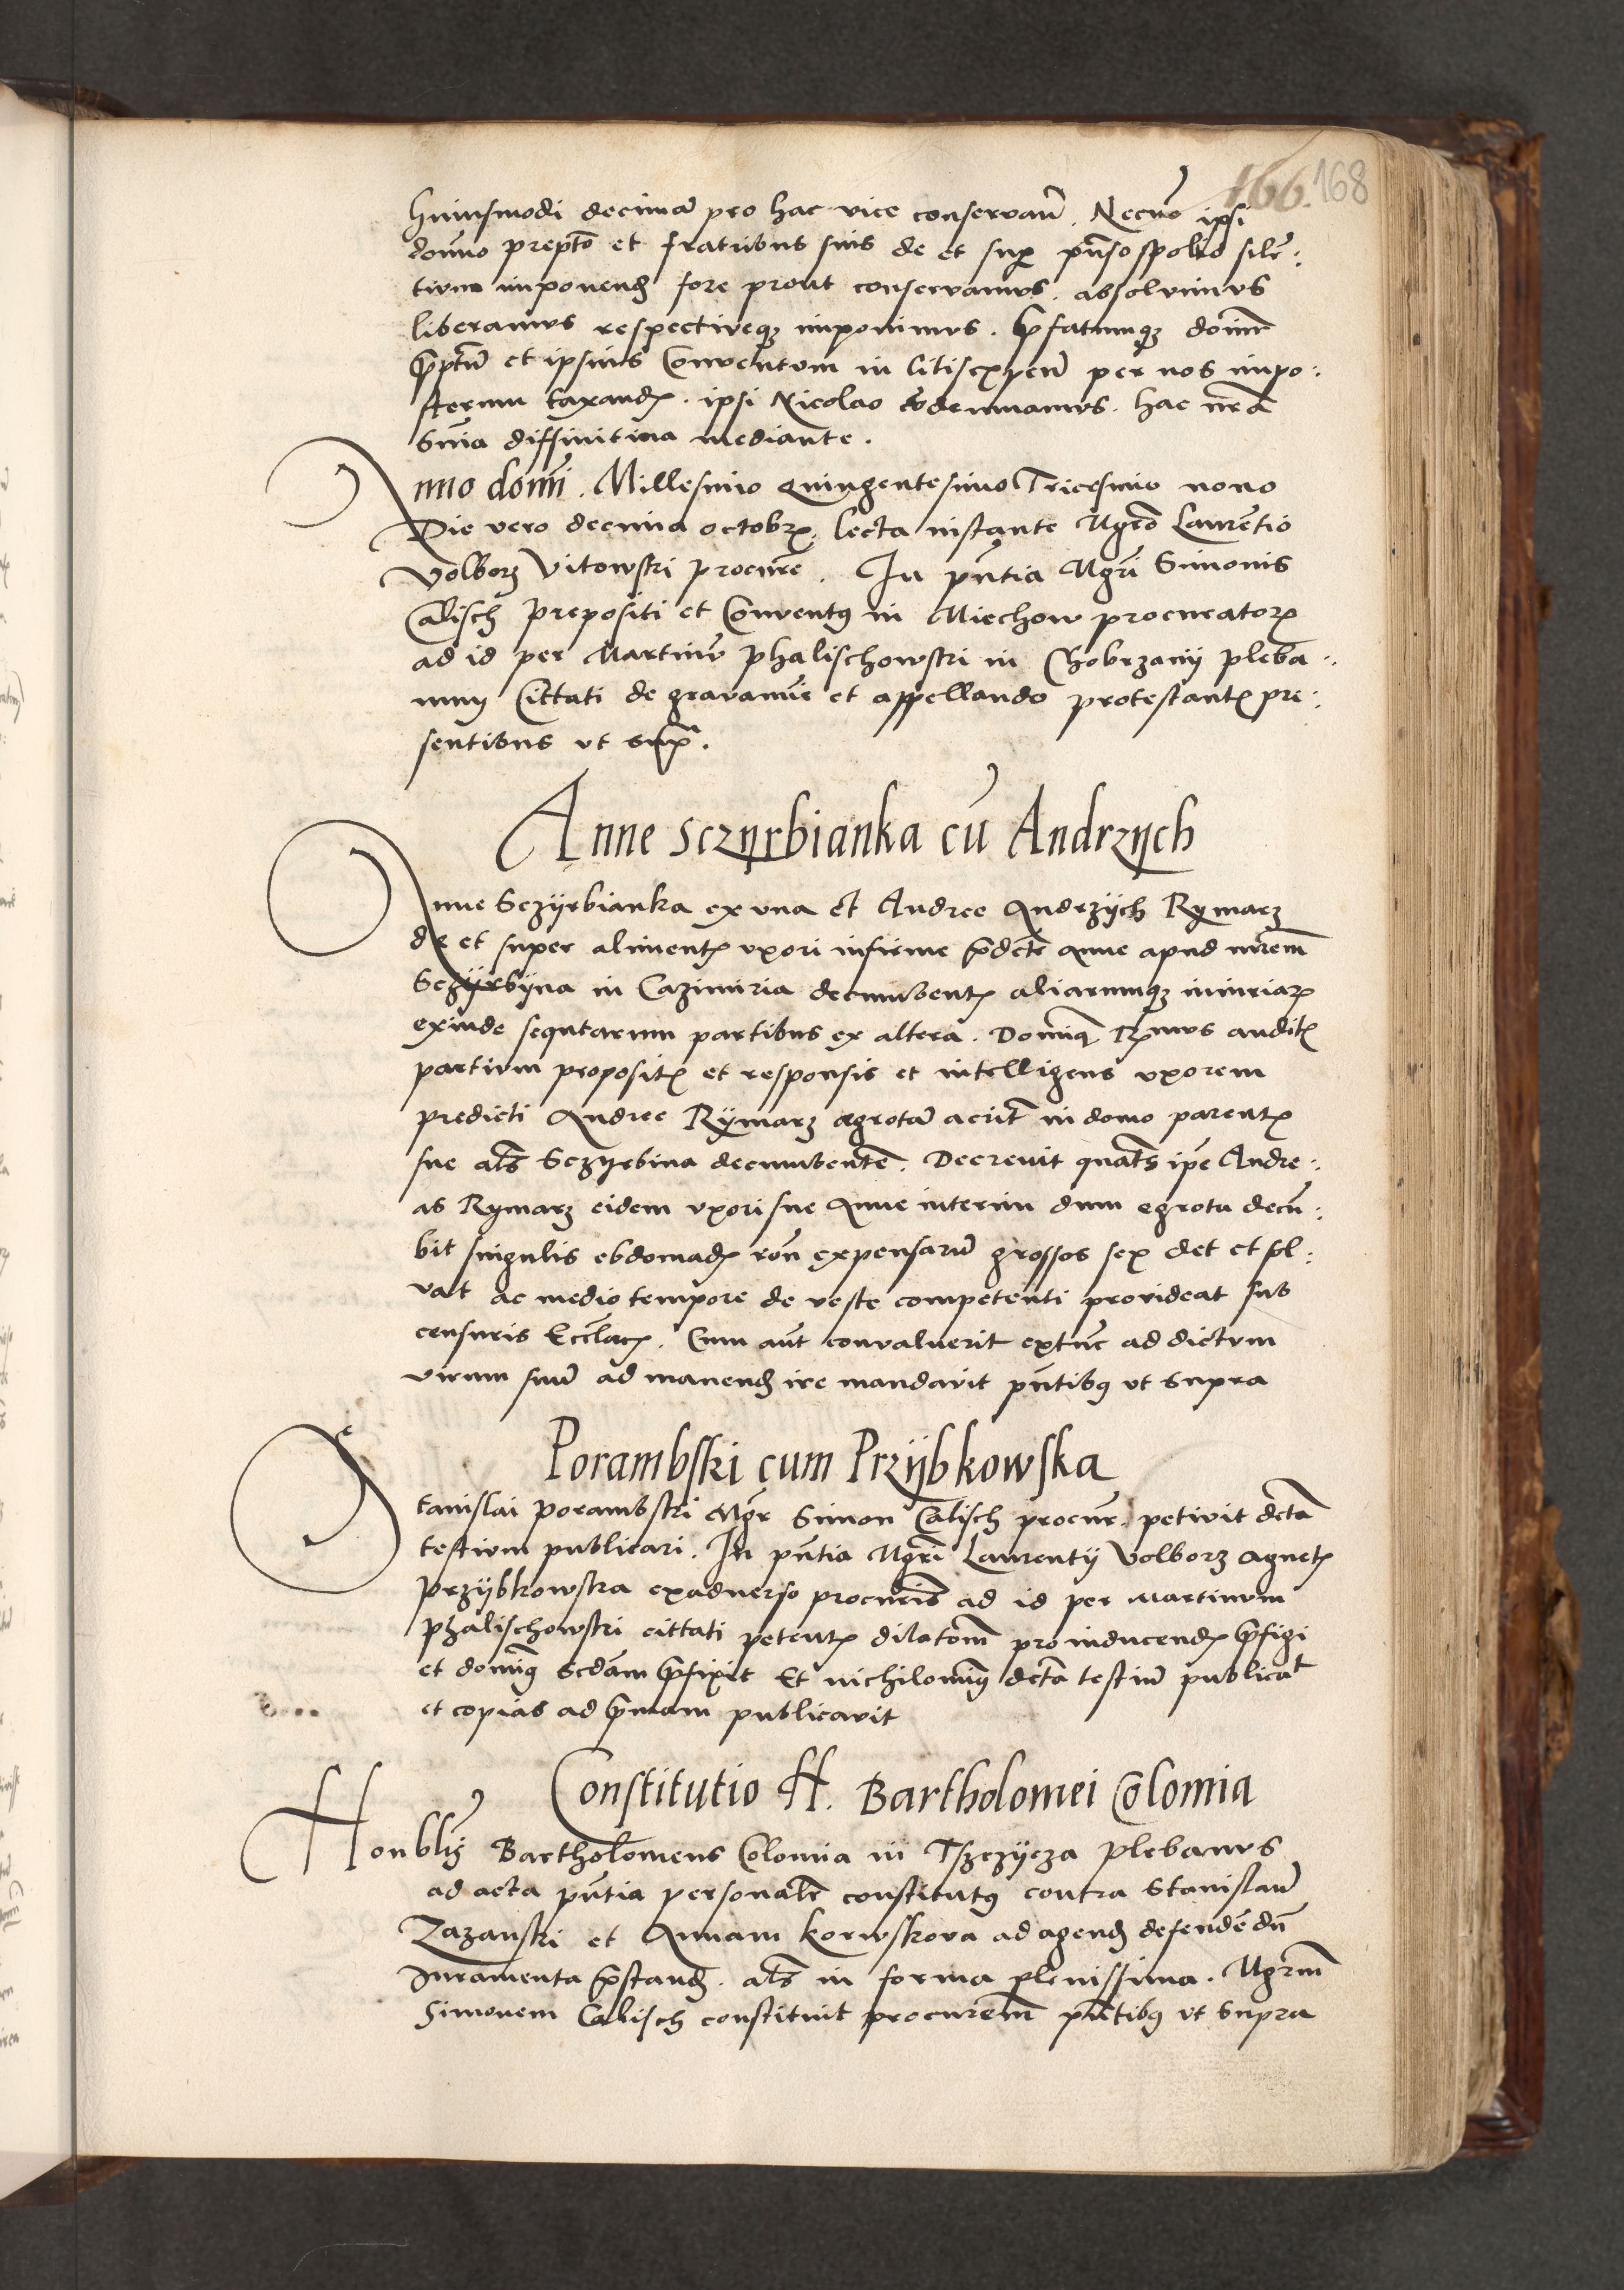 166. 168
huiusmodi decimā pro hac vice conservaū. Necnō ipsi
domno preptō et fratribus suis de et sup p̄nso spolio silē:
tium imponend fore prout conservamus. absolvimus
liberamus respectiveq imponimus. Prefatumq domē
preptū et ipsius Conventum in litisexpeñ per nos impo:
sterum taxand. ipsi Nicolao cōdemnamus. hac nrā
Snia diffinitiva mediante.
Anno domī. Millesimo Quingentesimo Tricesimo nono
Die vero decima octobr. lecta instante Mgrō Laurētio
Volborz Vitowski procurē. In pñtia Mgrī Simonis
Calisch prepositi et Conventq in Miechow procurator
ad id per Martinū phalischowski in Chobrzany pleba:
num Cittati de gravamīe et appellando protestant pre:
sentibus vt supª.
Anne sczyrbianka cū Andrzych
Anne Sczyrbianka ex vna et Andree Andrzych Rymarz
de et super aliment uxori infirme prdcte Anne apud mrem
Sczyrbyna in Cazimiria decumbent aliarumq iniuriar
exinde sequtarum partibus ex altera. Domiq Rmus audit
partium proposit et responsis et intelligens uxorem
predicti Andree Rymarz egrotā aciūt in domo parent
sue als Sczyrbina decumbentē. Decrevit quats ipe Andre:
as Rymarz eidem uxori sue Anne interim dum egrota decū:
bit singulis ebdomad rōn expensarū grossos sex det et sol:
vat ac medio tempore de veste competenti provideat sub
censuris Eccl̄ac. Cum aut convaluerit extūc ad dictum
virum suū ad manend ire mandavit pn̄tibq vt supra
Porambski cum Przybkowska
Stanislai porambski Mgr Simon Calisch procur. petivit dcta
testium publicari. In pn̄tia Mgrī Laurentij Volborz Agnet
przybkowska exadverso procuris ad id per Martinum
phalischowski cittati petent dilatom pro inducend prefigi
et domiq Scdam prefixit Et nichilomiq dcta testiū publicat
et copias ad prmam publicavit
Constitutio H. Bartholomei Colomia
Honblis Bartholomeus Colomia in Tszczycza plebanus
ad acta pn̄tia personalr constitutq contra Stanislaū
Zazanski et Annam korwskova ad agend defendēdū
Iuramenta prestand. als in forma plenissima. Mgrm
Simonem Calisch constituit procurem pn̄tibq vt supra